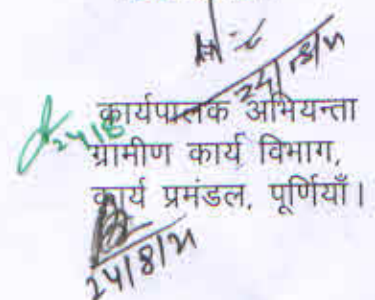 24/8
कार्यपालक अभियन्ता
ग्रामीण कार्य विभाग,
कार्य प्रमंडल, पूर्णियाँ।
24/8/21